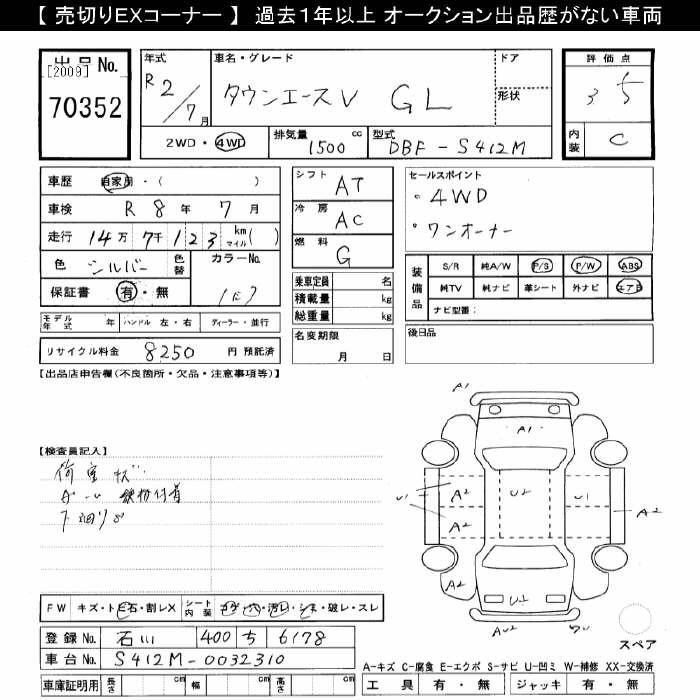 【 売切りEXコーナー 】 過去1年以上 オークション出品歴がない車両
出品 No.
[2009]
70352
年式
R 2/7月
車名・グレード
タウンエースV GL
ドア
形状
評価点
3.5
内装
C
2WD・4WD
排気量 1500 cc
型式 DBF-S412M
車歴 自家用・( )
車検 R 8年 7月
走行 14万 7千 1 2 3 km マイル( )
色 シルバー 色替 カラーNo. 1E7
保証書 有・無
シフト AT
冷房 AC
燃料 G
乗車定員 名
積載量 kg
総重量 kg
セールスポイント
・4WD
・ワンオーナー
装備品
S/R 純A/W P/S P/W ABS
純TV 純ナビ 革シート 外ナビ エアB
ナビ型番:
モデル年式 年 ハンドル 左・右 ディーラー・並行
リサイクル料金 8250 円 預託済
名変期限
月 日
後日品
【出品店申告欄(不良箇所・欠品・注意事項等)】
【検査員記入】
荷室キズ
下廻りサ
A1
A1
U1 A2 U2 U1
A2 A2
A2 A2
U2
AU2
スペア
FW キズ・トビ石・割レX シート内装 ・破レ・スレ
登録 No. 石川 400 ち 6178
車台 No. S412M-0032310
A-キズ C-腐食 E-エクボ S-サビ U-凹ミ W-補修 XX-交換済
車庫証明用 長さ cm 幅 cm 高さ cm
工具 有・無 ジャッキ 有・無